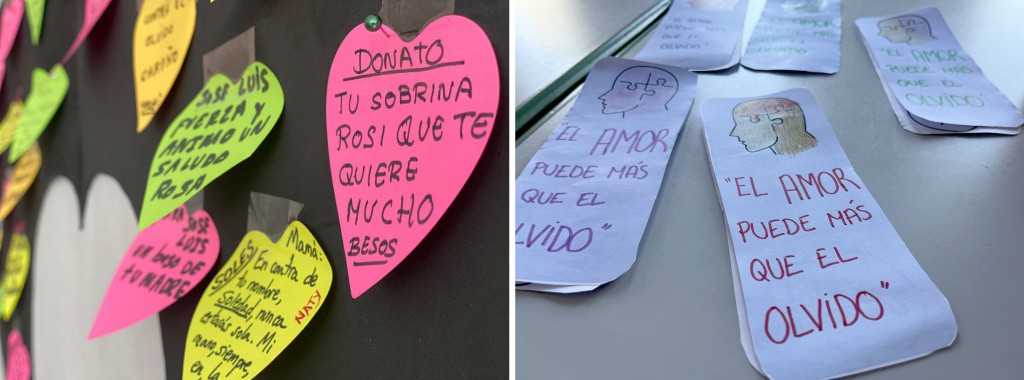 CONTRA EL
OLVIDO
CARIÑO
JOSE LUIS
FUERZA Y
ANIMO UN
SALUDO
ROSA
DONATO
TU SOBRINA
ROSI QUE TE
QUIERE
MUCHO
BESOS
JOSÉ
LUIS
un beso de
tu MADRE
SOLES
Mamá:
En contra de
tu nombre,
Soledad, nunca
estarás sola. Mi
amor, siempre,
en la
NATY
PUEDE MÁS
QUE EL
OLVIDO"
"EL AMOR
PUEDE MÁS
QUE EL
OLVIDO
"EL AMOR
PUEDE MÁS
QUE EL
OLVIDO"
"EL AMOR
PUEDE MÁS
QUE EL
LVIDO"
"EL AMOR
PUEDE MÁS
QUE EL
OLVIDO"